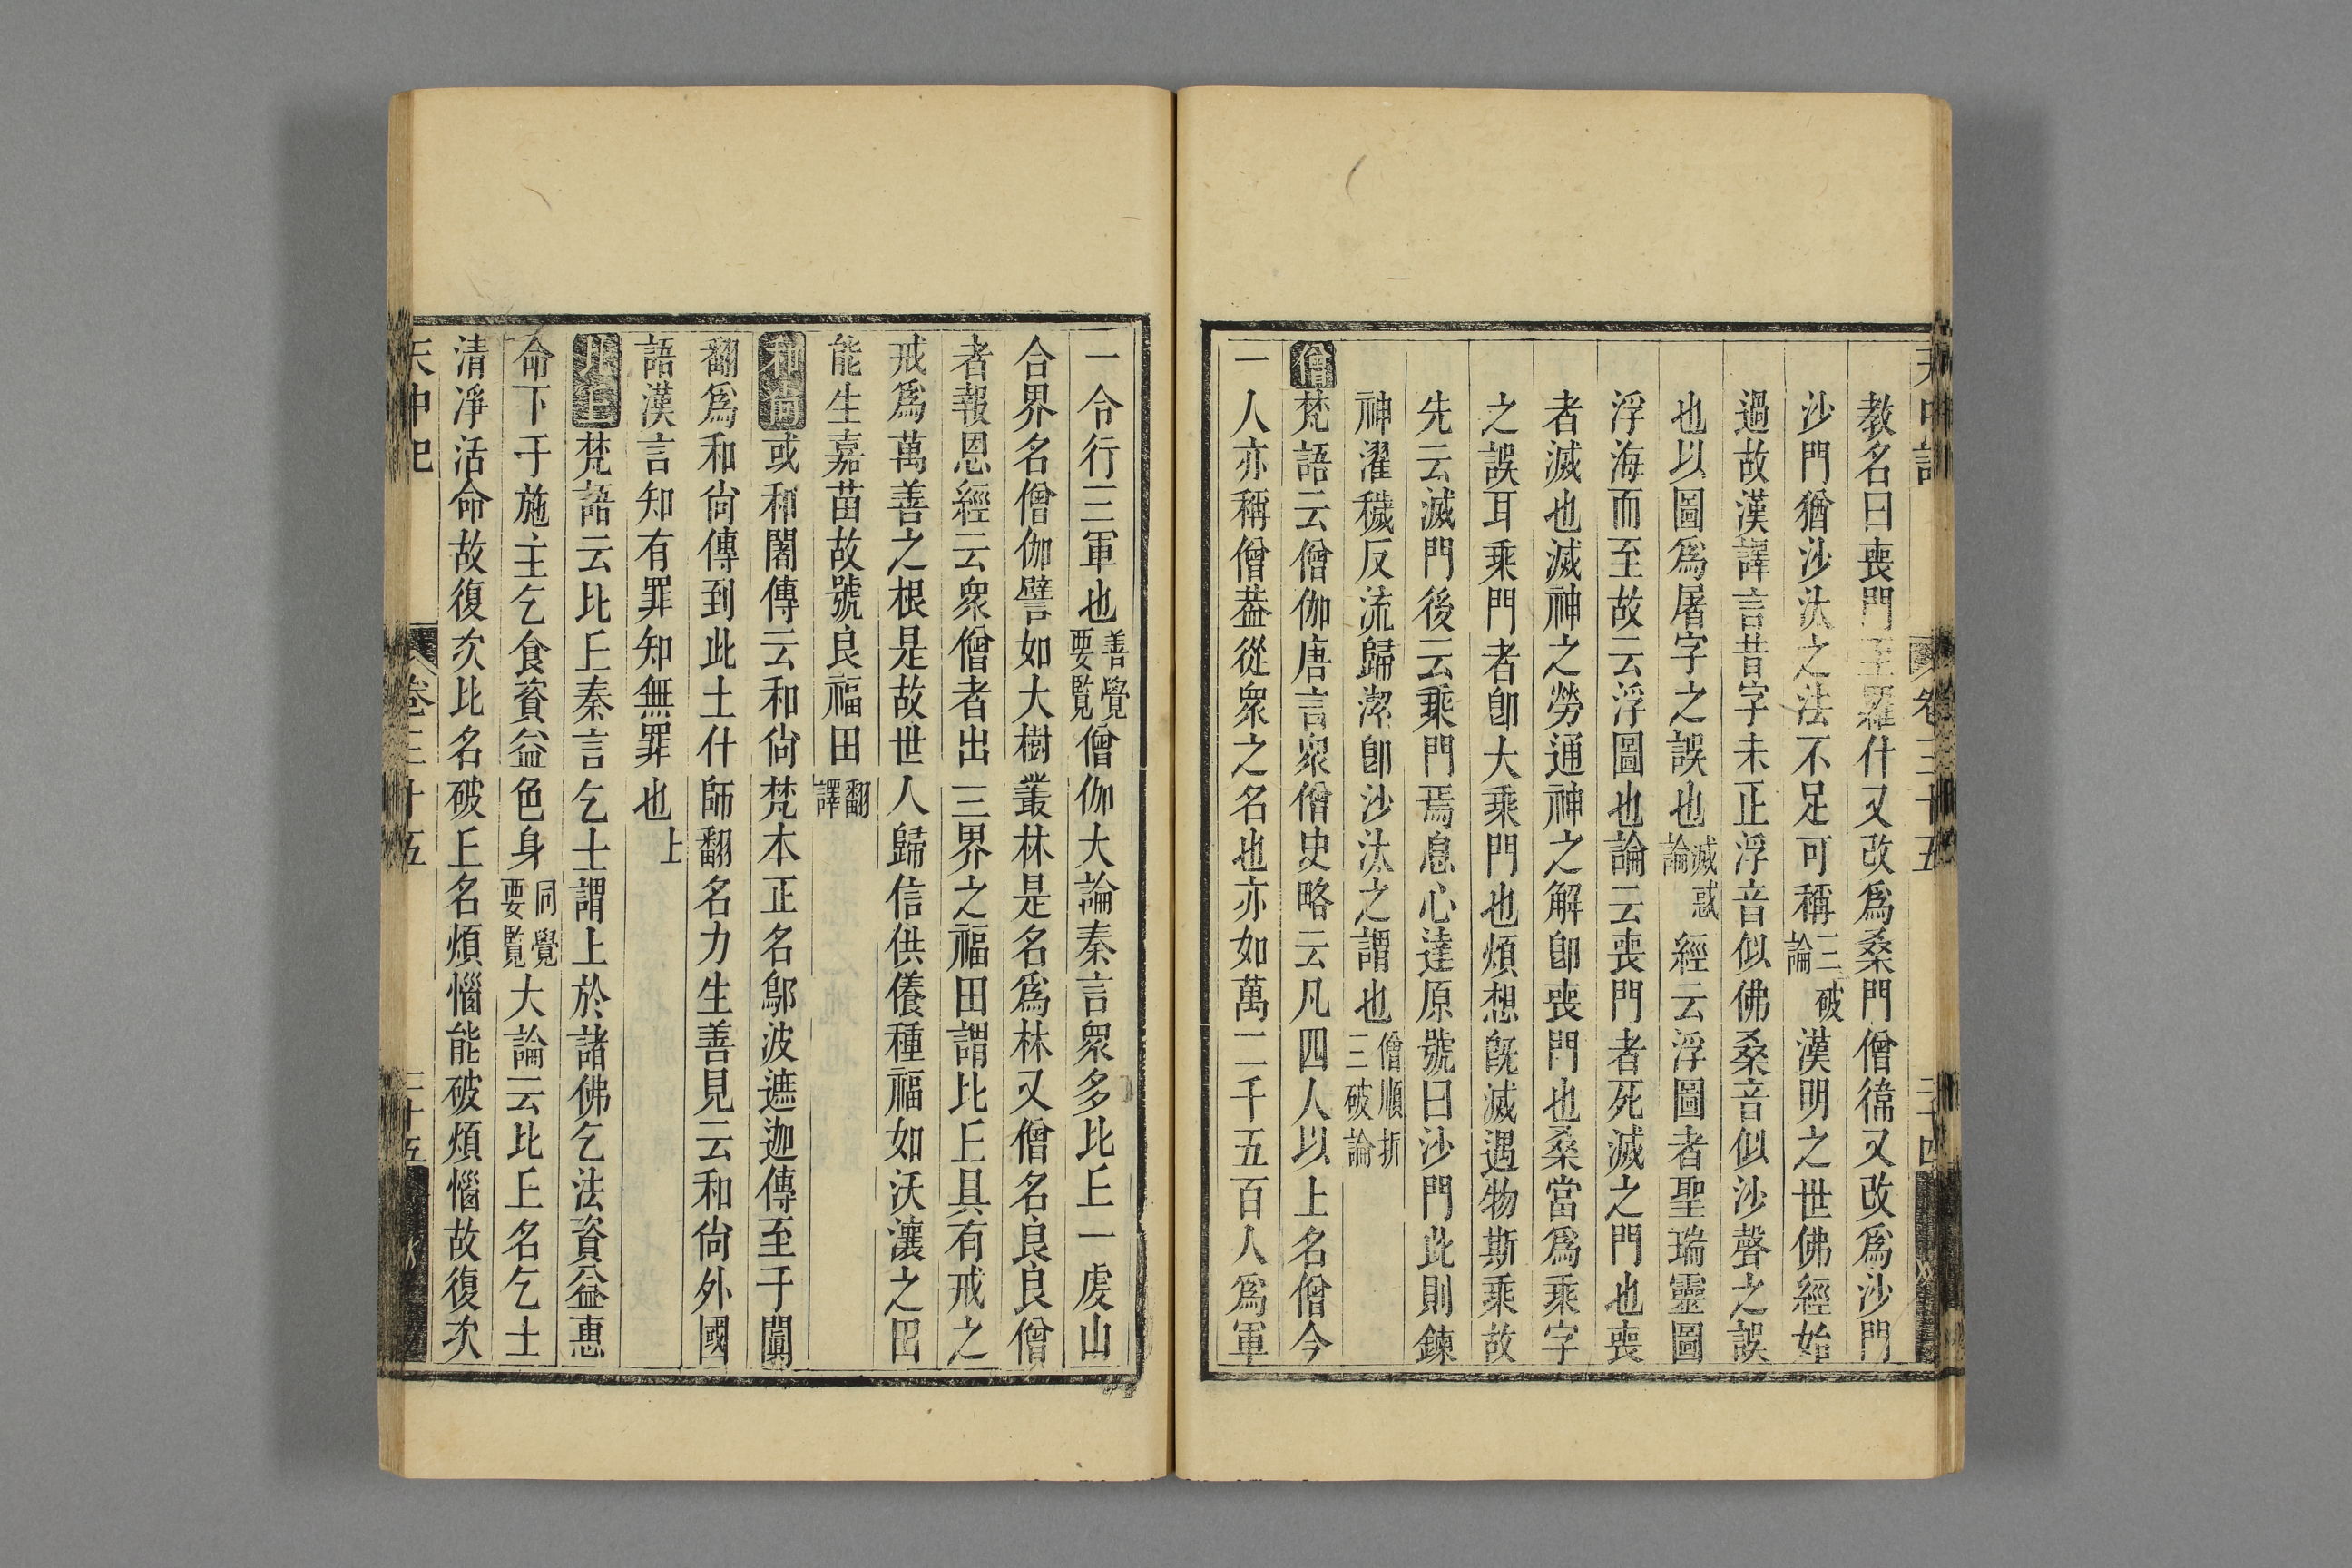 天中記 卷三十五 二十四
教名曰喪門至羅什又改爲桑門僧禕又改爲沙門
沙門猶沙汰之法不足可稱三破論漢明之世佛經始
過故漢譯言昔字未正浮音似佛桑音似沙聲之誤
也以圖爲屠字之誤也滅惑論經云浮圖者聖瑞靈圖
浮海而至故云浮圖也論云喪門者死滅之門也喪
者滅也滅神之勞通神之解卽喪門也桑當爲乘字
之誤耳乘門者卽大乘門也煩想旣滅遇物斯乘故
先云滅門後云乘門焉息心達原號曰沙門此則鍊
神濯穢反流歸潔卽沙汰之謂也僧順折三破論
僧梵語云僧伽唐言衆僧史略云凡四人以上名僧今
一人亦稱僧葢從衆之名也亦如萬二千五百人爲軍
一令行三軍也善覺要覧僧伽大論秦言衆多比丘一處山
合界名僧伽譬如大樹叢林是名爲林又僧名良良僧
者報恩經云衆僧者出三界之福田謂比丘具有戒之
戒爲萬善之根是故世人歸信供養種福如沃瀼之田
能生嘉苗故號良福田翻譯
和尙或和闍傳云和尙梵本正名鄔波遮迦傳至于闐
翻爲和尙傳到此土什師翻名力生善見云和尙外國
語漢言知有罪知無罪也上
比丘梵語云比丘秦言乞士謂上於諸佛乞法資益惠
命下于施主乞食資益色身同覺要覧大論云比丘名乞士
清淨活命故復次比名破丘名煩惱能破煩惱故復次
天中記 卷三十五 二十五